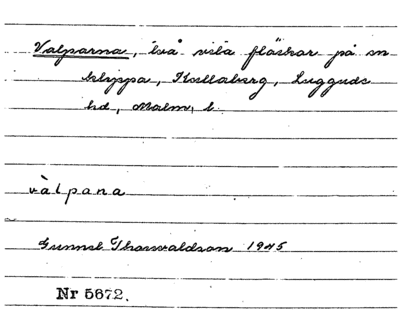 Valparna, två vita fläckar på en
klyppa, Kullaberg, Luggude
hd, Malm. l.
vàlpana
Gunnel Thorwaldson 1945
Nr 5672.